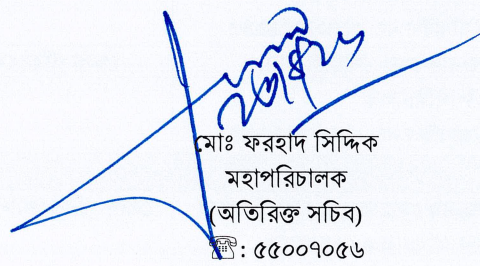 মোঃ ফরহাদ সিদ্দিক
মহাপরিচালক
(অতিরিক্ত সচিব)
☎: ৫৫০০৭০৫৬